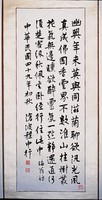 幽興年來莫與同滋蘭聊欲汎光風
真成佛國香雲界不數淮山桂樹叢
花氣無邊醺欲醉靈芬一點靜還通何
須楚客紉秋佩坐臥經行向此中
中華民國四十九年初秋 滄波程中行